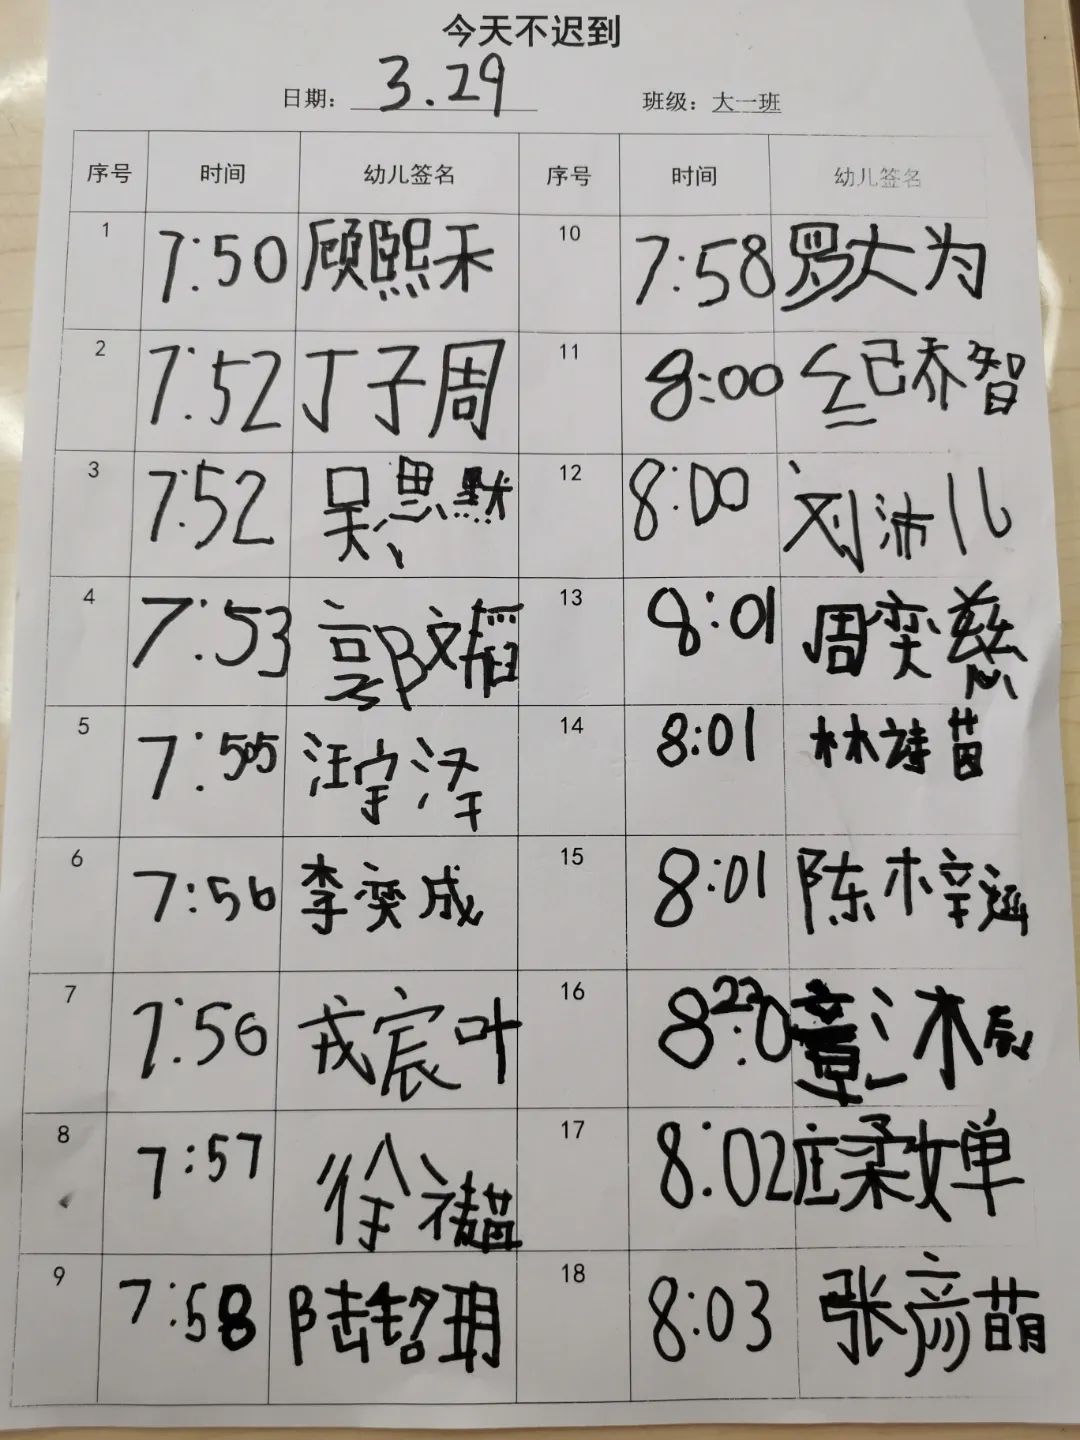 今天不迟到
日期: 3.29 班级: 大一班
序号 时间 幼儿签名 序号 时间 幼儿签名
1 7:50 顾熙禾 10 7:58 罗大为
2 7:52 丁子周 11 8:00 纪乔智
3 7:52 吴思默 12 8:00 刘沛儿
4 7:53 郭文 13 8:01 周奕慈
5 7:55 汪宇泽 14 8:01 林诗茵
6 7:56 李奕成 15 8:01 陈梓涵
7 7:56 戎宸叶 16 8:0
8 7:57 徐 17 8:02 庄柔婵
9 7:58 陆 玥 18 8:03 张彦萌